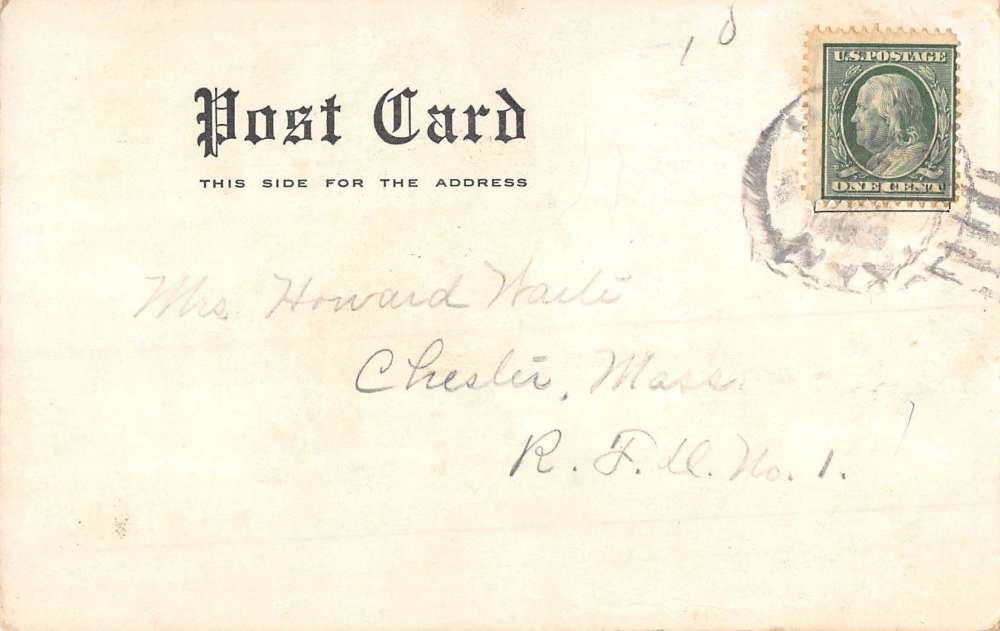 Post Card
THIS SIDE FOR THE ADDRESS
U.S.POSTAGE
ONE CENT
Mrs Howard Waite
Chester, Mass.
R. F. D. No. 1.